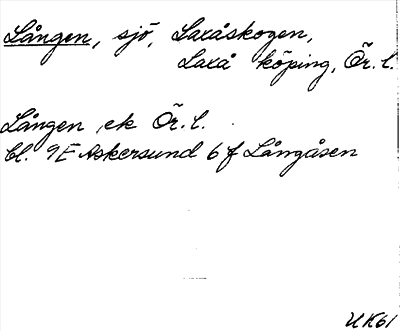 Lången, sjö, Laxåskogen,
Laxå köping, Ör. l.
Lången ek Ör. l.
bl. 9E Askersund 6 f Långåsen
UK61